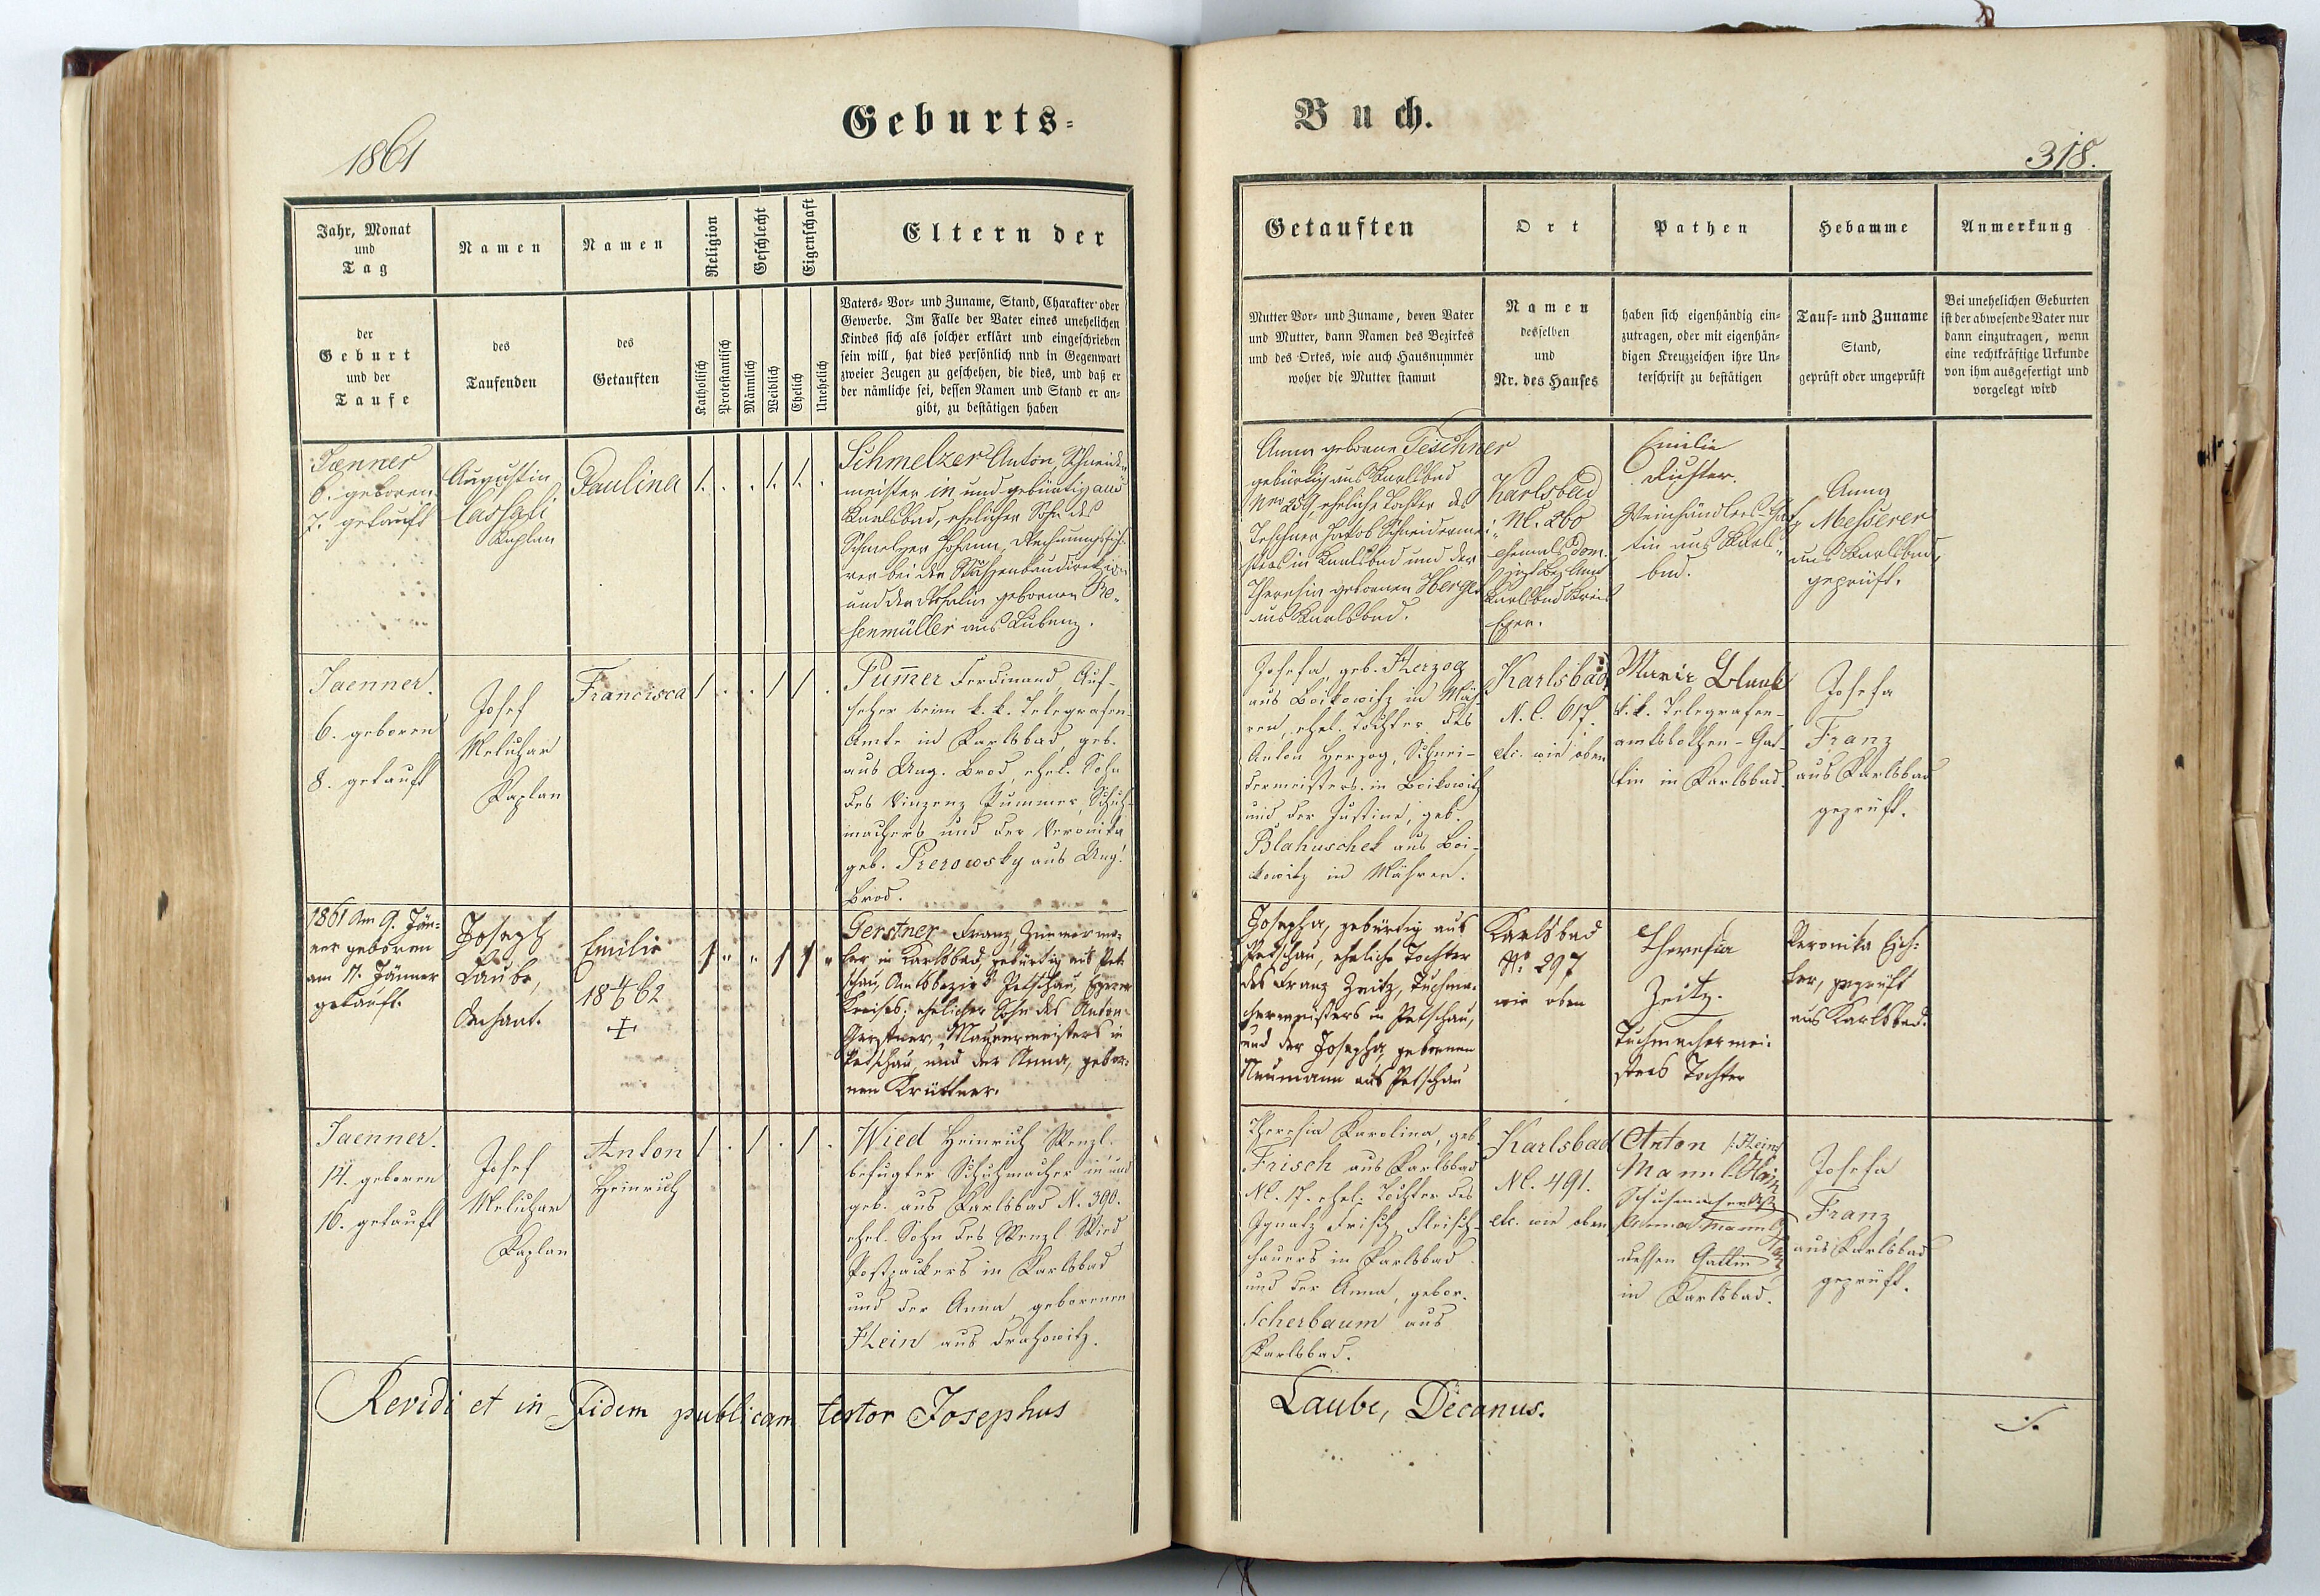 Geburts=
Buch.
1861
318.
Jahr, Monat
und
Tag
der
Geburt
und der
Taufe
Namen
des
Taufenden
Namen
des
Getauften
Religion
Katholisch
Protestantisch
Geschlecht
Männlich
Weiblich
Eigenschaft
Ehelich
Unehelich
Eltern der
Vaters= Vor= und Zuname, Stand, Charakter oder
Gewerbe. Im Falle der Vater eines unehelichen
Kindes sich als solcher erklärt und eingeschrieben
sein will, hat dies persönlich nnd in Gegenwart
zweier Zeugen zu geschehen, die dies, und daß er
der nämliche sei, dessen Namen und Stand er an=
gibt, zu bestätigen haben
Getauften
Mutter Vor= und Zuname, deren Vater
und Mutter, dann Namen des Bezirkes
und des Ortes, wie auch Hausnummer
woher die Mutter stammt
Ort
Namen
desselben
und
Nr. des Hauses
Pathen
haben sich eigenhändig ein=
zutragen, oder mit eigenhän=
digen Kreuzzeichen ihre Un=
terschrift zu bestätigen
Hebamme
Tauf= und Zuname
Stand,
geprüft oder ungeprüft
Anmerkung
Bei unehelichen Geburten
ist der abwesende Vater nur
dann einzutragen, wenn
eine rechtkräftige Urkunde
von ihm ausgefertigt und
vorgelegt wird
Jænner
6. geboren
7. getauft
Augustin
Kaplan
Paulina
1. . . 1. 1. .
Schmelzer Anton, Schneider
meister in und gebürtig aus
Karlsbad, ehelicher Sohn des
Schmelzer Johann, Rechnungsfüh
rer bei der Straßenbaudirektion
und der Rosalia gebornen Ro=
senmüller aus Lubenz.
Anna geborne Teschner
gebürtig aus Karlsbad
Nro 259, eheliche Tochter des
Teschner Jakob Schneidermei=
sters in Karlsbad und der
Theresia gebornen Herget
aus Karlsbad.
Karlsbad
NC. 260
ehemals Dom.
jetzt Bez. Amt
Karlsbad Kreis
Eger.
Emilie
Fuster.
Weinhändlers-Gat
tin aus Karls=
bad.
Anna
Messerer
aus Karlsbad,
geprüft.
Jaenner.
6. geboren
8. getauft
Josef
Meluzar
Kaplan
Francisca
1 . . 1 1 .
Pummer Ferdinand, Auf-
seher beim k. k. Telegrafen-
Amte in Karlsbad, geb.
aus Ung. Brod, ehel. Sohn
des Vinzenz Pummer, Schuh-
machers und der Veronika
geb. Prerowsky aus Ung.
Brod.
Josefa, geb. Herzog
aus Boikowitz in Mäh-
ren, ehel. Tochter des
Anton Herzog, Schnei-
dermeisters in Boikowitz
und der Justine, geb.
Blahuschek aus Boi-
kowitz in Mähren.
Karlsbad
N.C. 617.
etc. wie oben
Marie Blank
k.k. Telegrafen-
amtsbothen-Gat-
tin in Karlsbad.
Josefa
Franz
aus Karlsbad
geprüft.
1861 Am 9. Jän=
ner geboren
am 17. Jänner
getauft.
Joseph
Laube,
Dechant.
Emilie
18 4/6 62
+
1 " " 1 1 "
Gerstner Franz, Zimmerma=
ler in Karlsbad, gebürtig aus Pet=
schau, Amtsbezirks Petschau, Egerer
Kreises; ehelicher Sohn des Anton
Gerstner, Maurermeisters in
Petschau, und der Anna, gebor=
nen Krüttner.
Josepha, gebürtig aus
Petschau, eheliche Tochter
des Franz Zeitz, Tuchma=
chermeisters in Petschau,
und der Josepha, gebornen
Neumann aus Petschau
Karlsbad
No 297
wie oben
Theresia
Zeitz.
Tuchmachermei=
sters Tochter
Veronika Eich=
ler, geprüft
aus Karlsbad.
Jaenner.
14. geboren
16. getauft
Josef
Meluzar
Kaplan
Anton
Heinrich
1 . 1 . 1 .
Wied Heinrich Wenzl.
befugter Schuhmacher in und
geb. aus Karlsbad N. 390.
ehel. Sohn des Wenzl Wied
Postpackers in Karlsbad
und der Anna, geborenen
Hein aus Drahowitz.
Theresia Karolina, geb.
Frisch aus Karlsbad
NC. 17. ehel. Tochter des
Ignatz Frisch, Fleisch-
hauers in Karlsbad
und der Anna, gebor.
Scherbaum aus
Karlsbad.
Karlsbad
NC. 491.
etc. wie oben
Anton
Mannl
Anna Mannl
dessen Gattin
in Karlsbad.
Josefa
Franz
aus Karlsbad
geprüft.
Revidi et in Fidem publicam testor Josephus
Laube, Decanus.